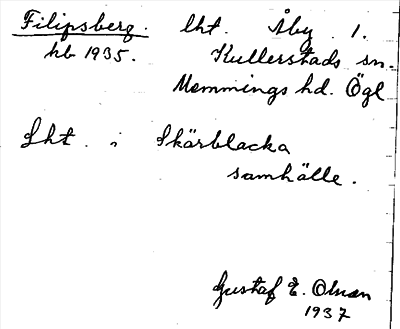 Filipsberg. lht. Åby 1.
kb 1935. Kullerstads sn.
Memmings hd. Ögl
Lht. i Skärblacka
samhälle.
Gustaf E. Olman
1937